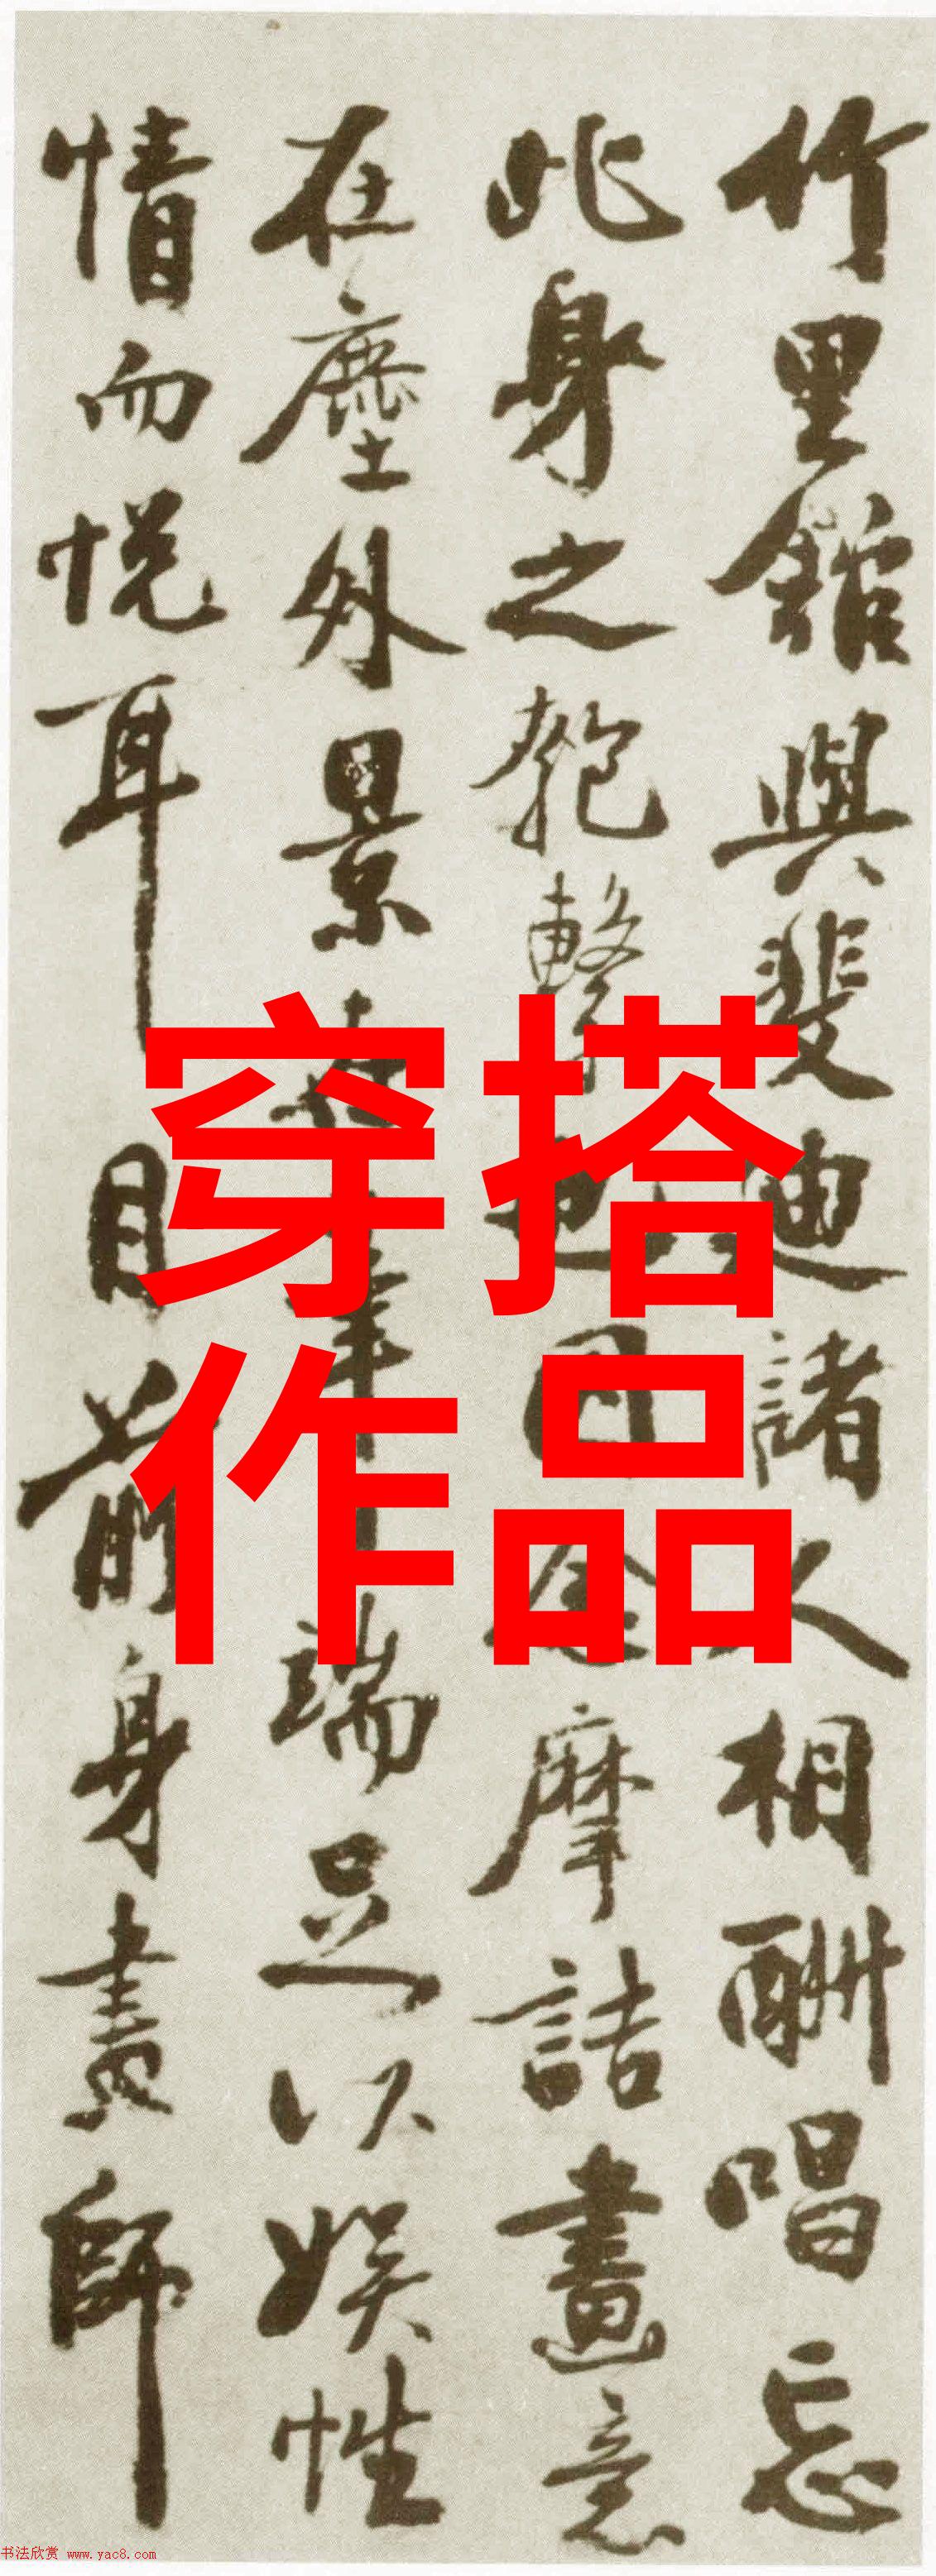 竹里館與斐迪諸人相酬唱忘
此身之匏繫也因念摩詰畫意
在塵外景在筆端足以娱性
情而悦耳目前身畫師
穿搭
作品
书法欣赏 www.yac8.com